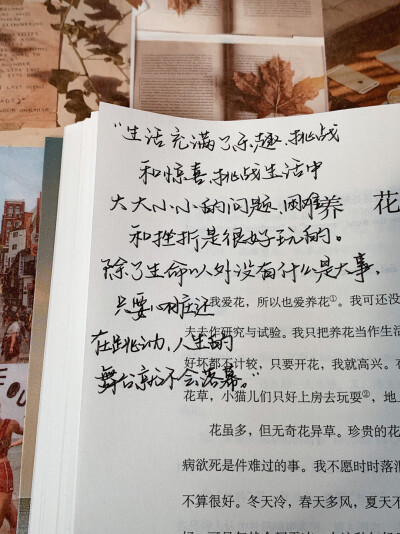 "生活充满了乐趣、挑战
和惊喜,挑战生活中
大大小小的问题、困难
和挫折是很好玩的。
除了生命以外没有什么是大事,
只要心脏还
在跳动,人生的
舞台就不会落幕。"
养 花
我爱花,所以也爱养花①。我可还没
去作研究与试验。我只把养花当作生活
好坏都不计较,只要开花,我就高兴。在
花草,小猫儿们只好上房去玩耍②,地
花虽多,但无奇花异草。珍贵的花
病欲死是件难过的事。我不愿时时落
不算很好。冬天冷,春天多风,夏天不